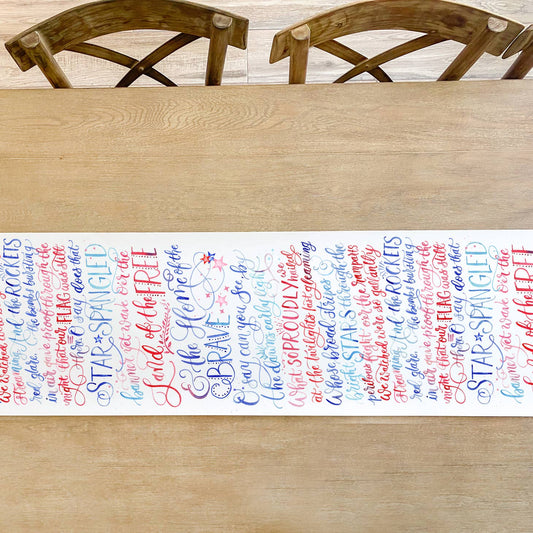 We watched were so
streaming And the ROCKETS
red glare, the bombs bursting
in air gave proof through the
night that our FLAG was still
there O say does that
STAR SPANGLED
banner yet wave O'er the
Land of the FREE
& the Home of the
BRAVE
O say can you see by
the dawn's early light
What so PROUDLY we hailed
at the twilight's last gleaming
Whose broad stripes &
bright STARS through the
perilous fight o'er the ramparts
We watched were so gallantly
streaming And the ROCKETS
red glare, the bombs bursting
in air gave proof through the
night that our FLAG was still
there O say does that
STAR SPANGLED
banner yet wave O'er the
Land of the FREE